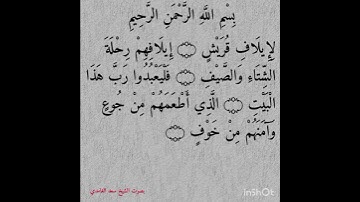 بِسْمِ اللَّهِ الرَّحْمَنِ الرَّحِيمِ
لِإِيلَافِ قُرَيْشٍ ۝ إِيلَافِهِمْ رِحْلَةَ
الشِّتَاءِ وَالصَّيْفِ ۝ فَلْيَعْبُدُوا رَبَّ هَذَا
الْبَيْتِ ۝ الَّذِي أَطْعَمَهُمْ مِنْ جُوعٍ
وَآمَنَهُمْ مِنْ خَوْفٍ ۝
بصوت الشيخ سعد الغامدي
InShOt